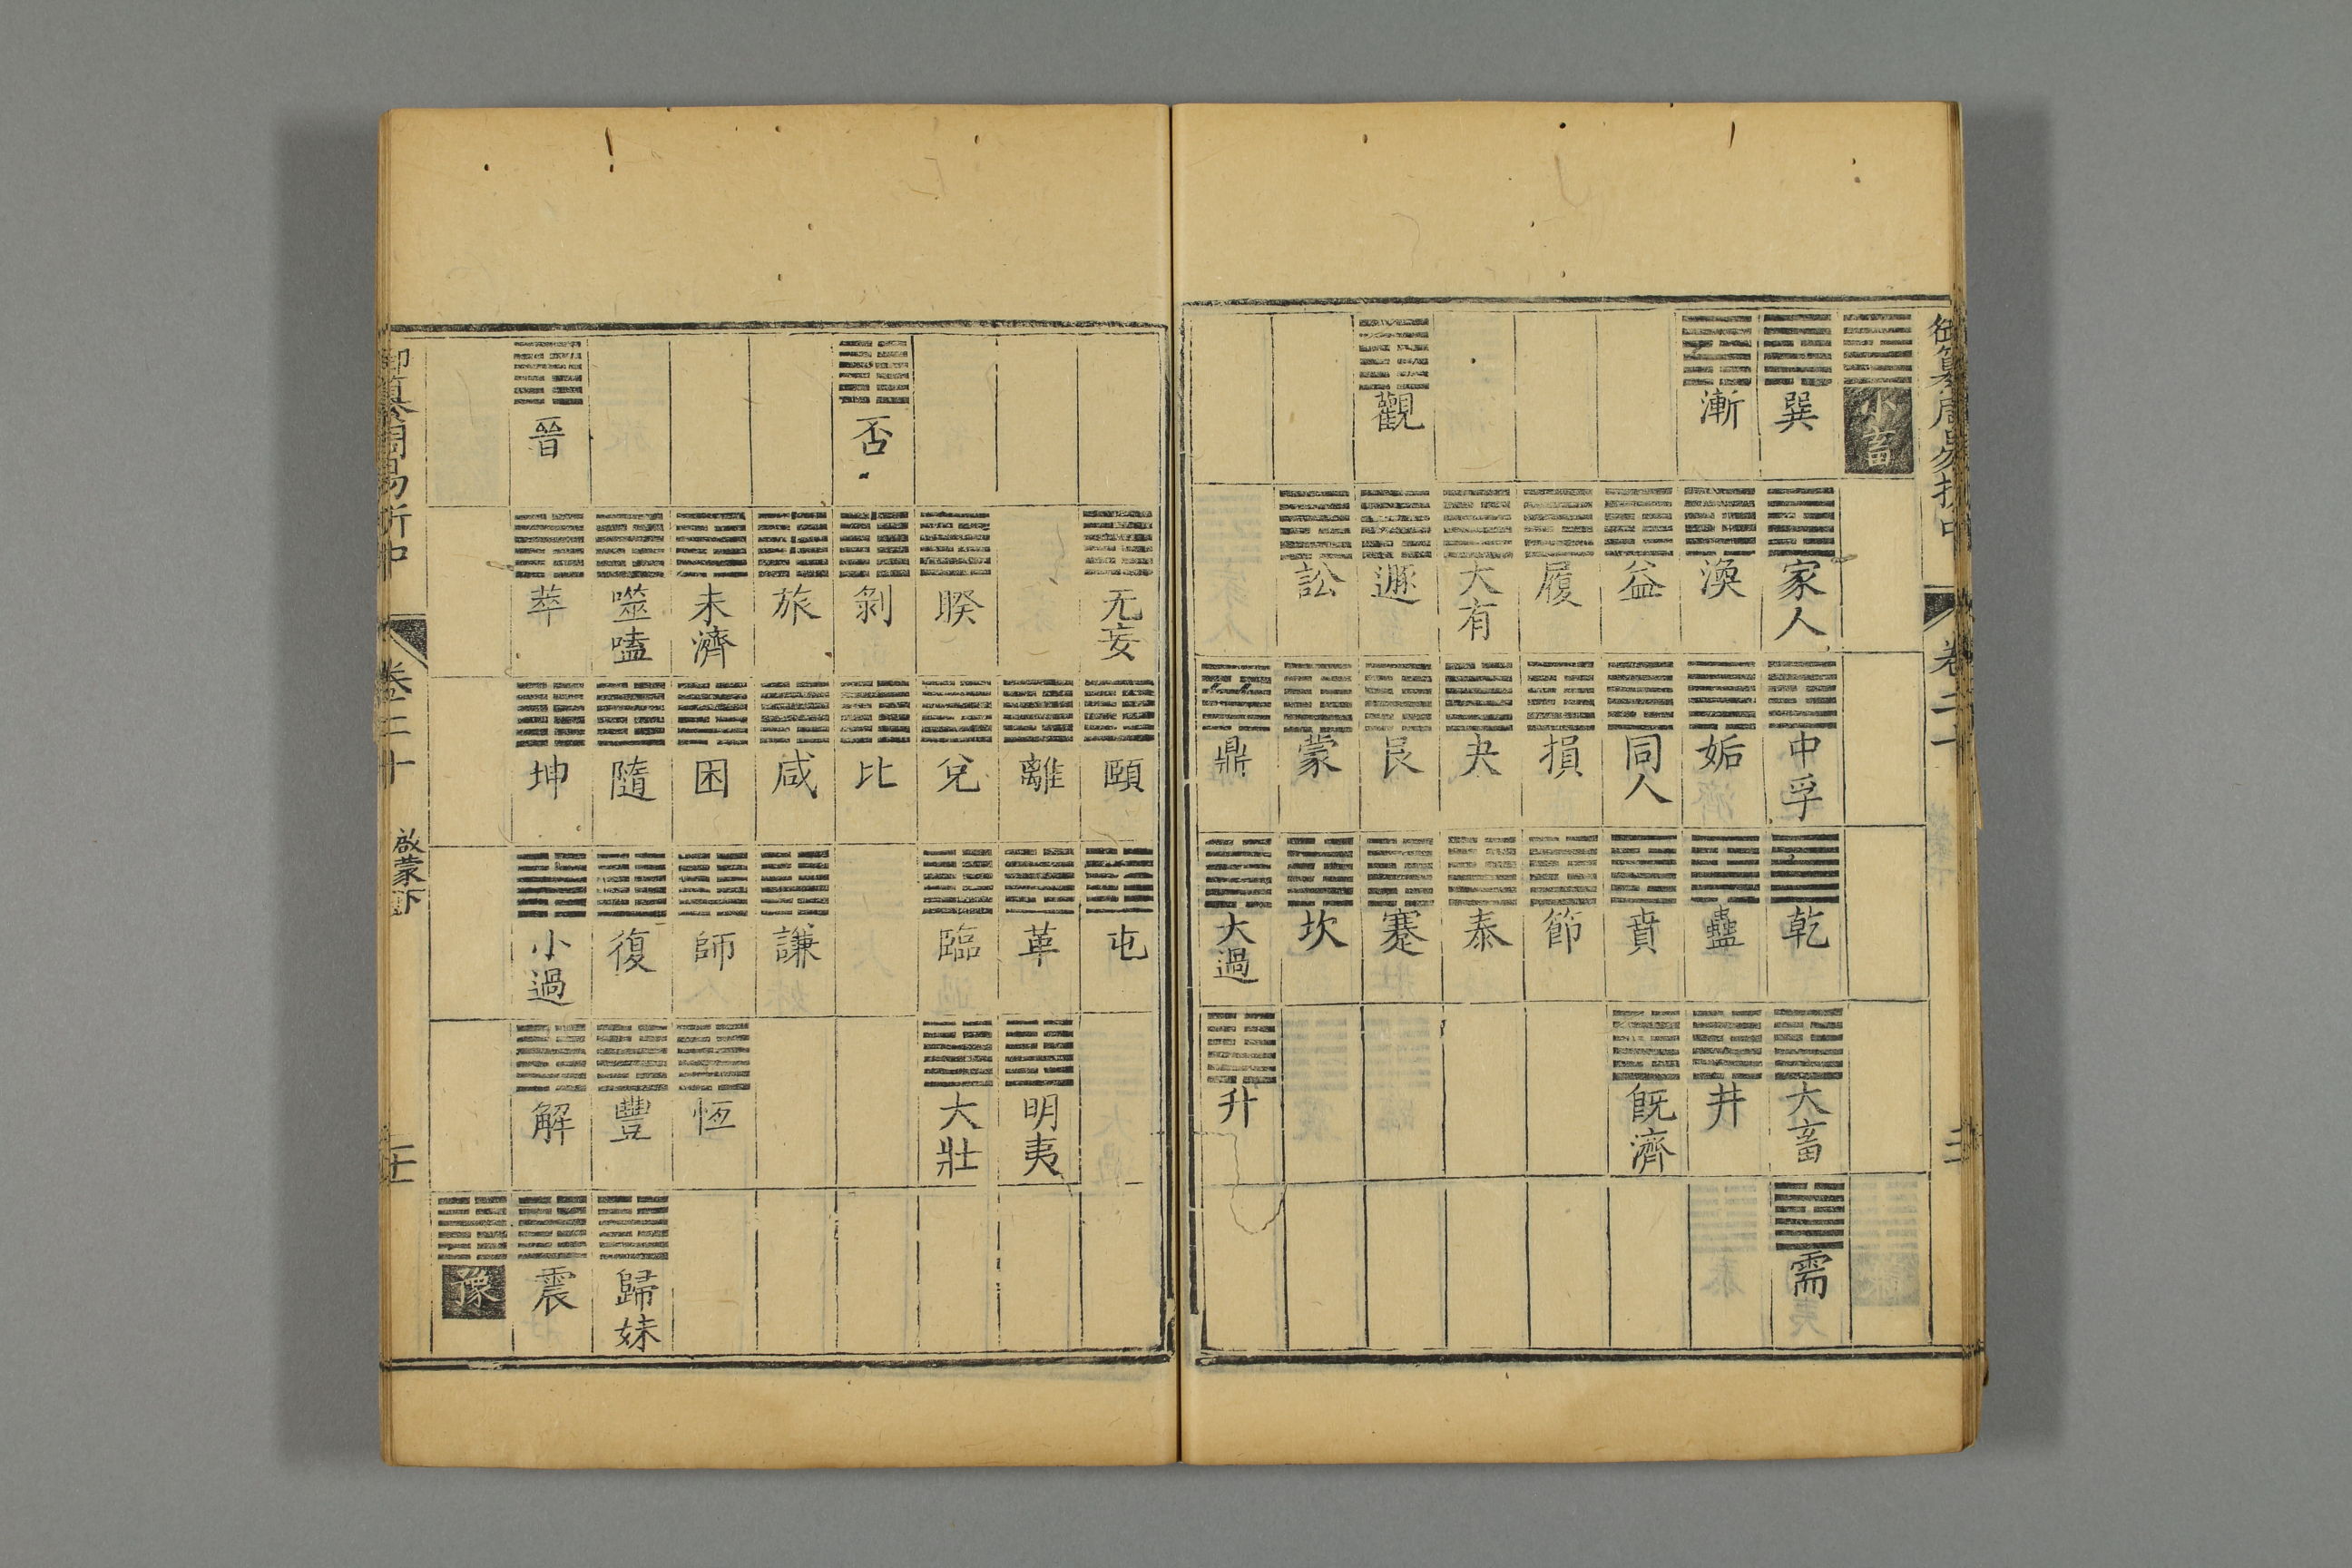 御纂周易折中 卷二十
小畜
巽 家人 中孚 乾 大畜 需
漸 渙 姤 蠱 井
益 同人 賁 旣濟
履 損 節
大有 夬 泰
觀 遯 艮 蹇
訟 蒙 坎
鼎 大過 升
无妄 頤 屯
離 革 明夷
睽 兌 臨 大壯
否 剝 比
旅 咸 謙
未濟 困 師 恆
噬嗑 隨 復 豐 歸妹
晉 萃 坤 小過 解 震
豫
御纂周易折中 卷二十 啟蒙下